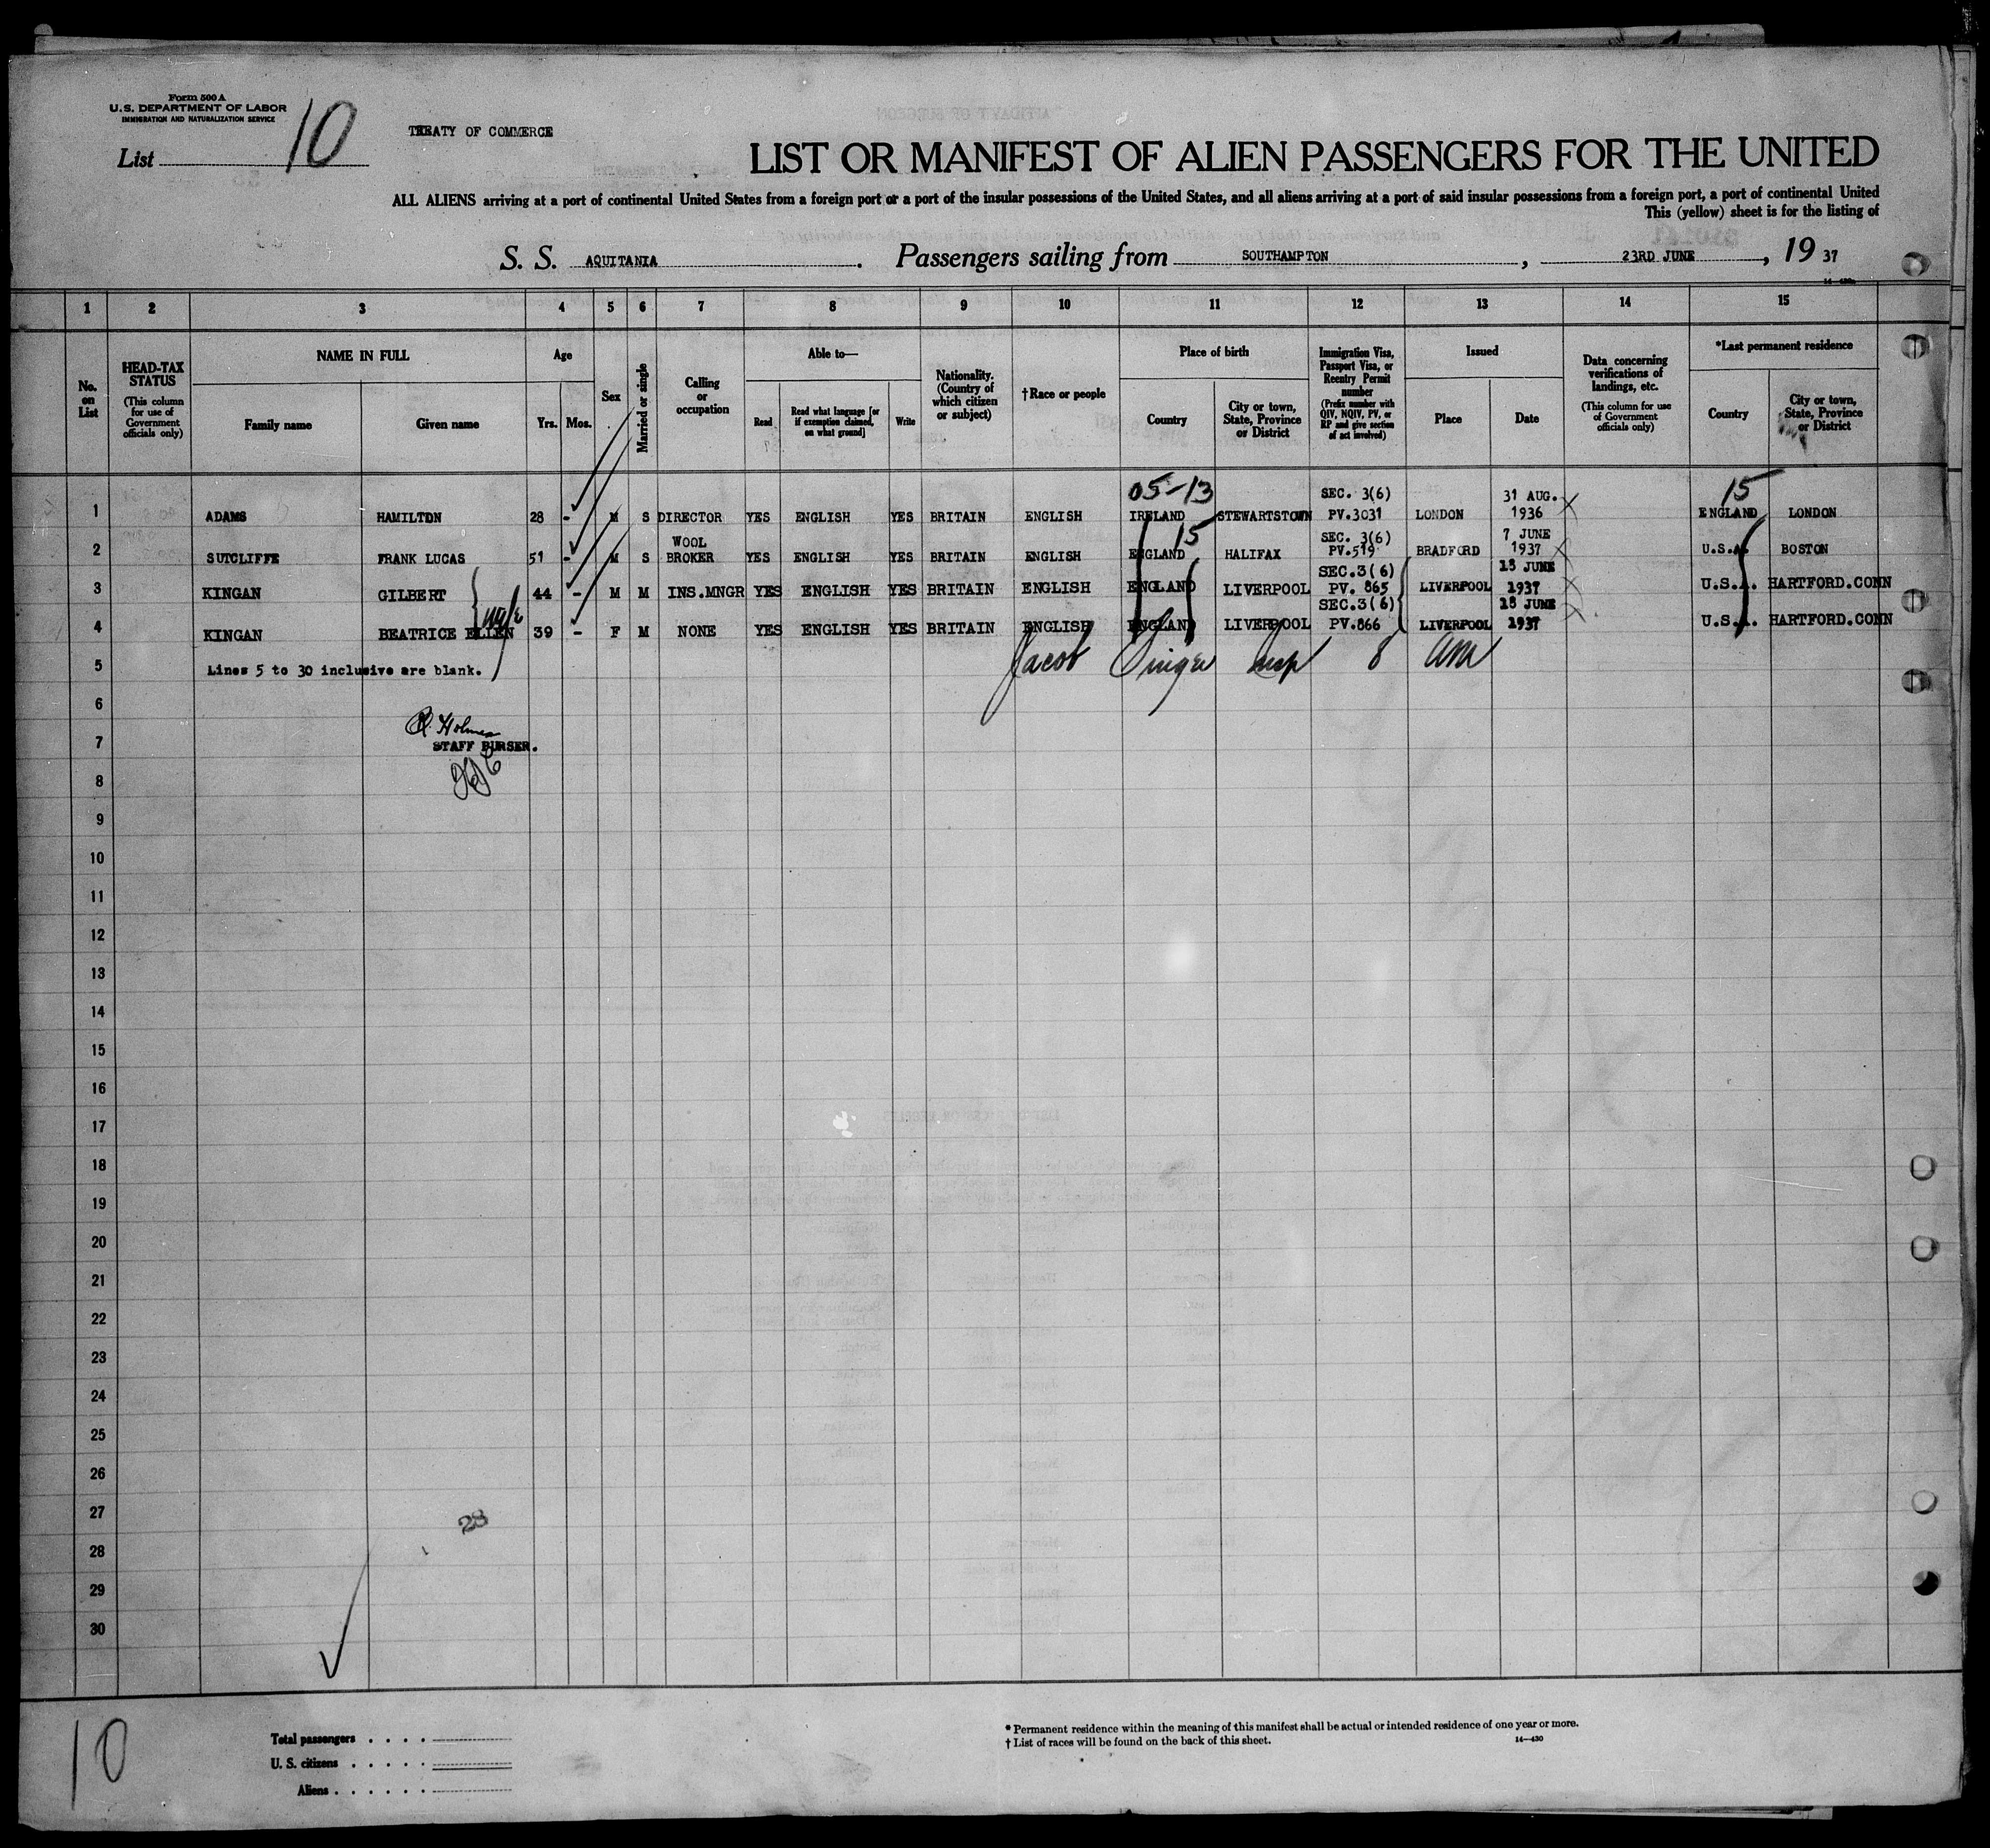 Form 500 A
U.S. DEPARTMENT OF LABOR
IMMIGRATION AND NATURALIZATION SERVICE
List 10
TREATY OF COMMERCE
LIST OR MANIFEST OF ALIEN PASSENGERS FOR THE UNITED
ALL ALIENS arriving at a port of continental United States from a foreign port or a port of the insular possessions of the United States, and all aliens arriving at a port of said insular possessions from a foreign port, a port of continental United
This (yellow) sheet is for the listing of
S. S. AQUITANIA. Passengers sailing from SOUTHAMPTON, 23RD JUNE, 19 37
1 2 3 4 5 6 7 8 9 10 11 12 13 14 15
No. on List
HEAD-TAX STATUS
(This column for use of Government officials only)
NAME IN FULL
Family name
Given name
Age
Yrs.
Mos.
Sex
Married or single
Calling or occupation
Able to—
Read
Read what language [or if exemption claimed, on what ground]
Write
Nationality. (Country of which citizen or subject)
† Race or people
Place of birth
Country
City or town, State, Province or District
Immigration Visa, Passport Visa, or Reentry Permit number
(Prefix number with QIV, NQIV, PV, or RP and give section of act involved)
Issued
Place
Date
Data concerning verifications of landings, etc.
(This column for use of Government officials only)
*Last permanent residence
Country
City or town, State, Province or District
05-13 SEC. 3(6) 31 AUG. 15
1 ADAMS HAMILTON 28 - M S DIRECTOR YES ENGLISH YES BRITAIN ENGLISH IRELAND STEWARTSTOWN PV.3031 LONDON 1936 X ENGLAND LONDON
WOOL 15 SEC. 3(6) 7 JUNE
2 SUTCLIFFE FRANK LUCAS 51 - M S BROKER YES ENGLISH YES BRITAIN ENGLISH ENGLAND HALIFAX PV.519 BRADFORD 1937 X U.S.A. BOSTON
SEC.3(6) 18 JUNE
3 KINGAN GILBERT 44 - M M INS.MNGR YES ENGLISH YES BRITAIN ENGLISH ENGLAND LIVERPOOL PV. 865 LIVERPOOL 1937 X U.S.A. HARTFORD.CONN
wife SEC.3(6) 18 JUNE
4 KINGAN BEATRICE ELLEN 39 - F M NONE YES ENGLISH YES BRITAIN ENGLISH ENGLAND LIVERPOOL PV.866 LIVERPOOL 1937 X U.S.A. HARTFORD.CONN
5 Lines 5 to 30 inclusive are blank. Jacob Singer Insp 8 am
6
R. Holmes
7 STAFF PURSER.
8
9
10
11
12
13
14
15
16
17
18
19
20
21
22
23
24
25
26
27
23
28
29
30
10
Total passengers
U. S. citizens
Aliens
* Permanent residence within the meaning of this manifest shall be actual or intended residence of one year or more.
† List of races will be found on the back of this sheet.
14—430